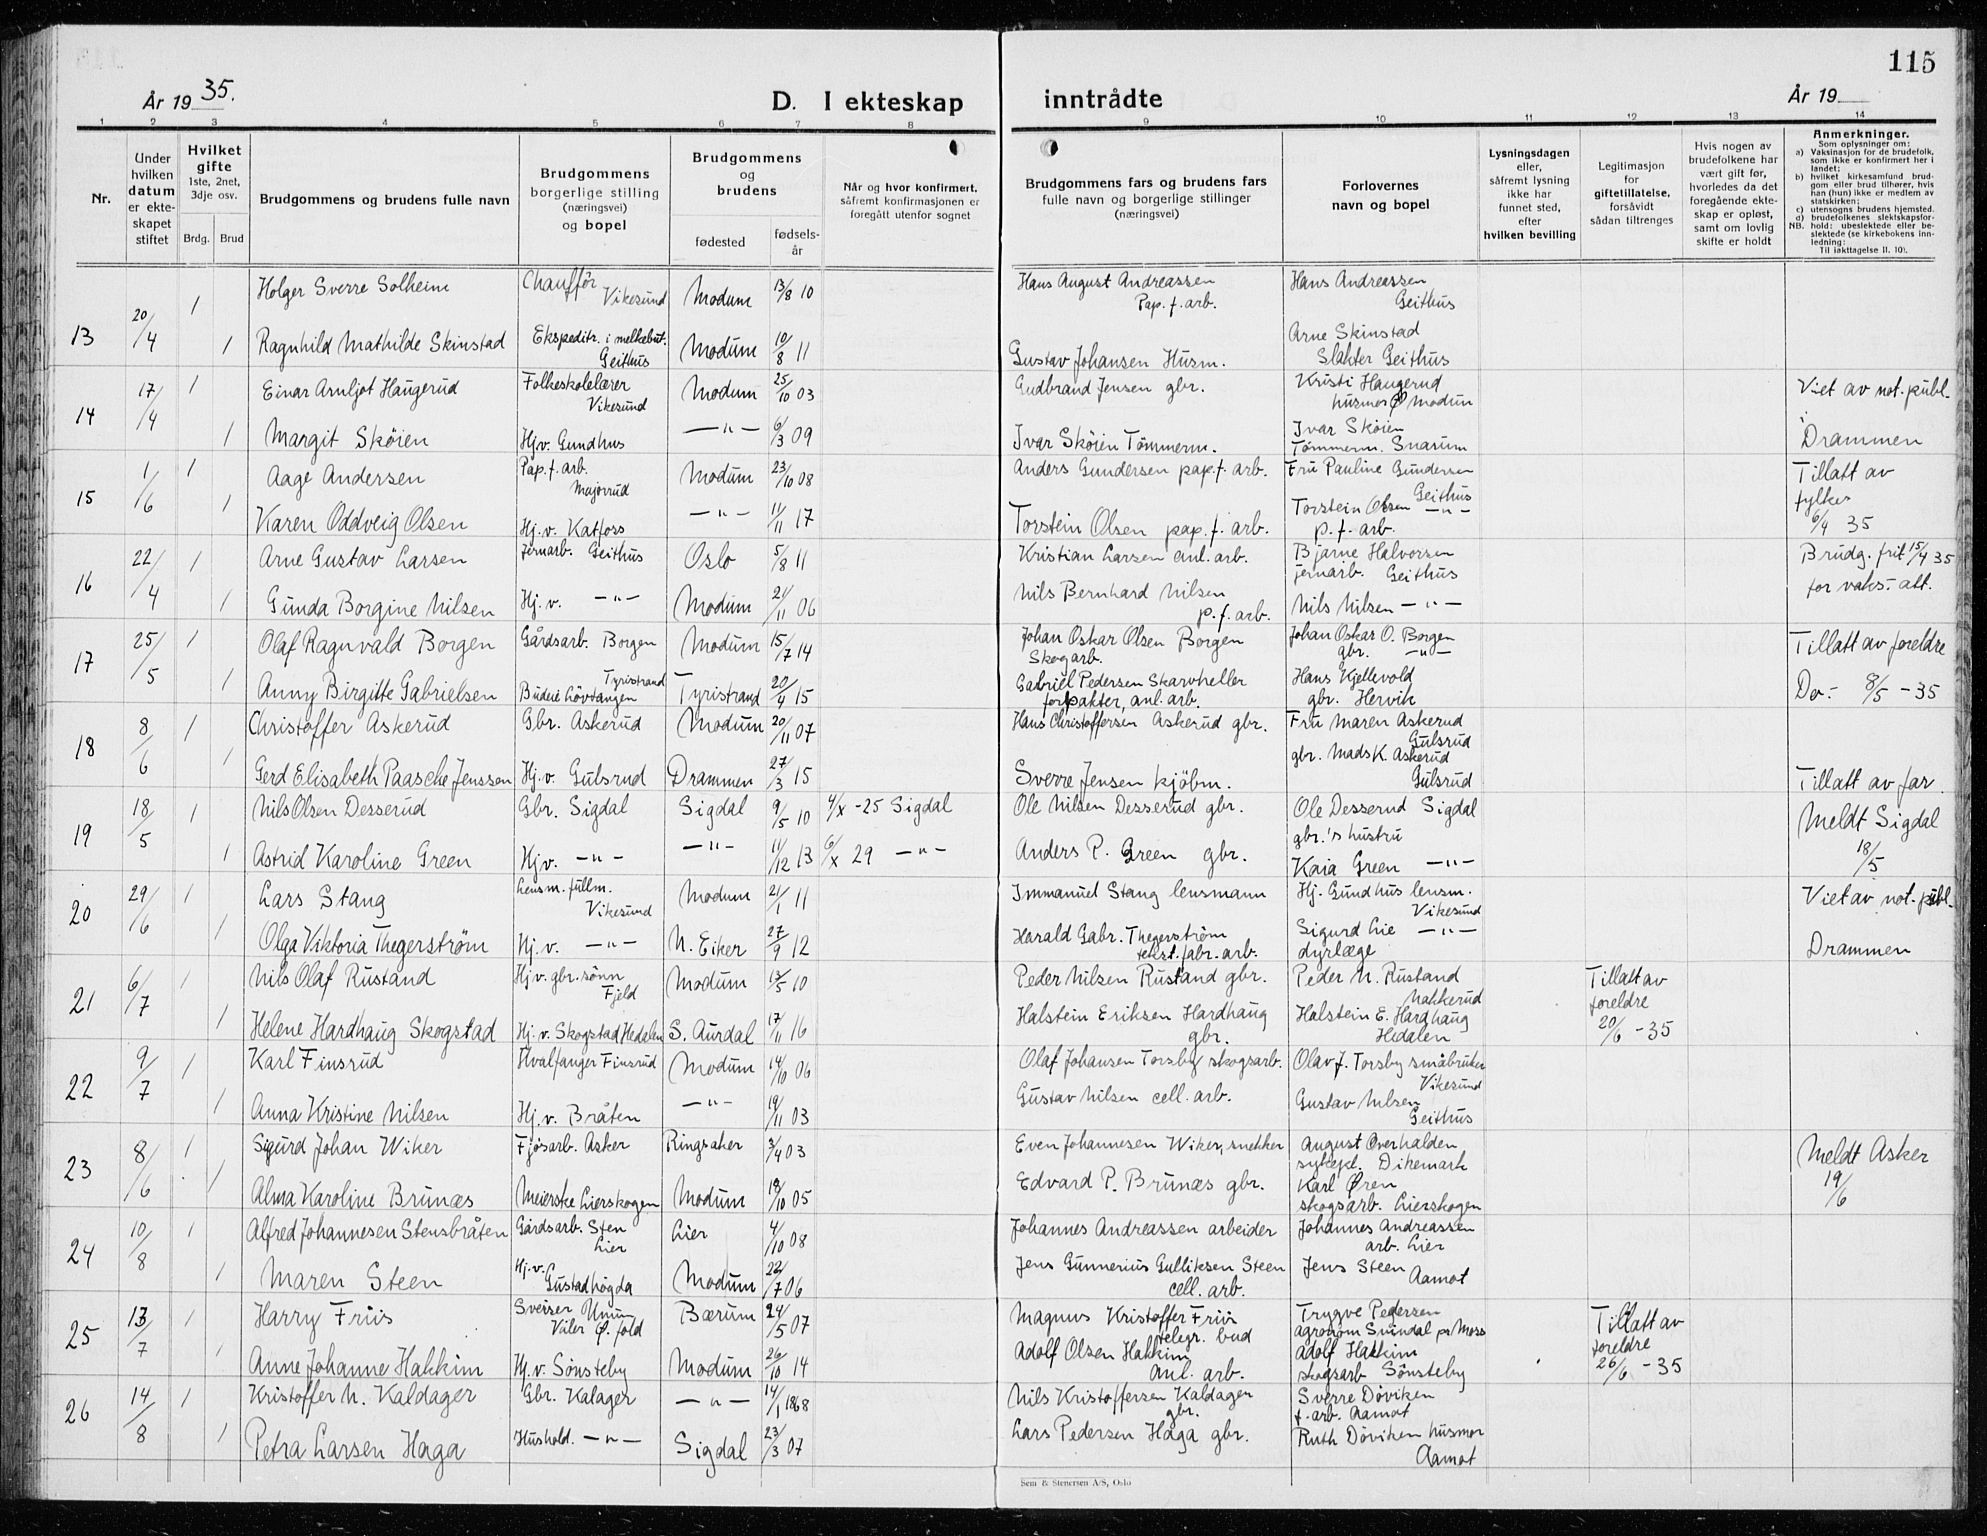 115
År 1935.
D. I ekteskap inntrådte
År 19
1 2 3 4 5 6 7 8 9 10 11 12 13 14
Nr.
Under hvilken datum er ekteskapet stiftet
Hvilket gifte 1ste, 2net, 3dje osv.
Brdg. Brud
Brudgommens og brudens fulle navn
Brudgommens borgerlige stilling (næringsvei) og bopel
Brudgommens og brudens
fødested
fødselsår
Når og hvor konfirmert, såfremt konfirmasjonen er foregått utenfor sognet
Brudgommens fars og brudens fars fulle navn og borgerlige stillinger (næringsvei)
Forlovernes navn og bopel
Lysningsdagen eller, såfremt lysning ikke har funnet sted, efter hvilken bevilling
Legitimasjon for giftetillatelse, forsåvidt sådan tiltrenges
Hvis nogen av brudefolkene har vært gift før, hvorledes da det foregående ekteskap er opløst, samt om lovlig skifte er holdt
Anmerkninger.
Som oplysninger om:
a) Vaksinasjon for de brudefolk, som ikke er konfirmert her i landet;
b) hvilket kirkesamfund brudgom eller brud tilhører, hvis han (hun) ikke er medlem av statskirken;
c) utensogns brudens hjemsted.
d) brudefolkenes slektskapsforhold: ubeslektede eller beslektede (se kirkebokens innledning:
NB. Til iakttagelse II. 10).
13 20/4 1 Holger Sverre Solheim Chauffør Vikesund Modum 13/8 10 Hans August Andreassen Pap. f. arb. Hans Andreassen Geithus
1 Ragnhild Mathilde Skinstad Ekspeditr. i melkebut. Geithus Modum 10/8 11 Gustav Johansen Husm. Arne Skinstad Slakter Geithus
14 17/4 1 Einar Arnljot Haugerud Folkeskolelærer Vikesund Modum 25/10 03 Gudbrand Jensen gbr. Kristi Haugerud husmor Modum Viet av not. publ. i
1 Margit Skøien Hjv. Gundhus —"— 6/3 09 Ivar Skøien Tømmerm. Ivar Skøien Tømmerm. Snarum Drammen
15 1/6 1 Aage Andersen Pap. f. arb. Majorrud Modum 23/10 08 Anders Gundersen pap. f. arb. Fru Pauline Gundersen Geithus Tillatt av fylket
1 Karen Oddveig Olsen Hj. v. Katfoss —"— 11/11 17 Torstein Olsen pap. f. arb. Torstein Olsen —"— p. f. arb. 6/4 35
16 22/4 1 Arne Gustav Larsen Jernarb. Geithus Oslo 5/8 11 Kristian Larsen anl. arb. Bjarne Halvorsen jernarb. Geithus Brudg. frit 15/4 35 for vaks.- att.
1 Gunda Borgine Nilsen Hj. v. —"— Modum 21/11 06 Nils Bernhard Nilsen p. f. arb. Nils Nilsen —"—
17 25/5 1 Olaf Ragnvald Borgen Gårdsarb. Borgen Modum 15/7 14 Johan Oskar Olsen Borgen Skogarb. Johan Oskar O. Borgen gbr. —"— Tillatt av foreldre
1 Anny Birgitte Gabrielsen Tyristrand Budeie Løvvangen Tyristrand 20/4 15 Gabriel Pedersen Skarvheller forpakter, anl. arb. Hans Kjellevold gbr. Hervik Do.- 8/5 -35
18 8/6 1 Christoffer Askerud Gbr. Askerud Modum 20/11 07 Hans Christoffersen Askerud gbr. Fru Maren Askerud Gulsrud
1 Gerd Elisabeth Paasche Jenssen Hj. v. Gulsrud Drammen 27/3 15 Sverre Jensen kjøbm. gbr. Mads K. Askerud Gulsrud Tillatt av far.
19 18/5 1 Nils Olsen Desserud Gbr. Sigdal Sigdal 9/5 10 4/X -25 Sigdal Ole Nilsen Desserud gbr. Ole Desserud Sigdal gbr.'s hustru Meldt Sigdal
1 Astrid Karoline Green Hjv. —"— —"— 11/12 13 6/X 29 —"— Anders P. Green gbr. Kaia Green —"— 18/5
20 29/6 1 Lars Stang Lensm. fullm. Vikesund Modum 21/1 11 Immanuel Stang lensmann Hj. Gundhus lensm. Vikesund Viet av not. publ.
1 Olga Viktoria Thegerstrøm Hj. v. —"— N. Eiker 27/9 12 Harald Gabr. Thegerstrøm tekst. fabr. arb. Sigurd Lie —"— dyrlæge Drammen
21 6/7 1 Nils Olaf Rustand Hj. v. gbr. sønn Fjeld Modum 13/5 10 Peder Nilsen Rustand gbr. Peder N. Rustand Nakkerud Tillatt av foreldre
1 Helene Hardhaug Skogstad Hj. v. Skogstad Hedalen S. Aurdal 17/11 16 Halstein Eriksen Hardhaug gbr. Halstein E. Hardhaug Hedalen 20/6 -35
22 9/7 1 Karl Finsrud Hvalfanger Finsrud Modum 14/10 06 Olaf Johansen Torsby skogsarb. Olav J. Torsby småbruker Vikesund
1 Anna Kristine Nilsen Hj. v. Bråten —"— 19/11 03 Gustav Nilsen cell. arb. Gustav Nilsen Geithus
23 8/6 1 Sigurd Johan Wiker Fjøsarb. Asker Ringsaker 3/4 03 Even Johannesen Wiker, snekker August Overhalden sykepl. Dikemark Meldt Asker
1 Alma Karoline Brunæs Meierske Lierskogen Modum 18/10 05 Edvard P. Brunæs gbr. Karl Øren skogsarb. Lierskogen 19/6
24 10/8 1 Alfred Johannesen Stensbråten Gårdsarb. Sten Lier Lier 4/10 08 Johannes Andreassen arbeider Johannes Andreassen arb. Lier
1 Maren Steen Hj. v. Gustadhøgda Modum 22/7 06 Jens Gunnerius Gulliksen Steen cell. arb. Jens Steen Aamot
25 13/7 1 Harry Friis Sveiser Unum Våler Ø. fold Bærum 24/5 07 Magnus Kristoffer Friis telegr. bud Trygve Pedersen agronom Svindal pr Moss Tillatt av foreldre
1 Anne Johanne Hakkim Hj. v. Sønsteby Modum 26/10 14 Adolf Olsen Hakkim Anl. arb. Adolf Hakkim skogsarb Sønsteby 26/6 -35
26 14/8 1 Kristoffer N. Kaldager Gbr. Kalager —"— 14/1 1868 Nils Kristoffersen Kaldager gbr. Sverre Døviken f. arb. Aamot
1 Petra Larsen Haga Hushold. —"— Sigdal 23/3 07 Lars Pedersen Haga gbr. Ruth Døviken husmor Aamot
Sem & Stenersen A/S, Oslo